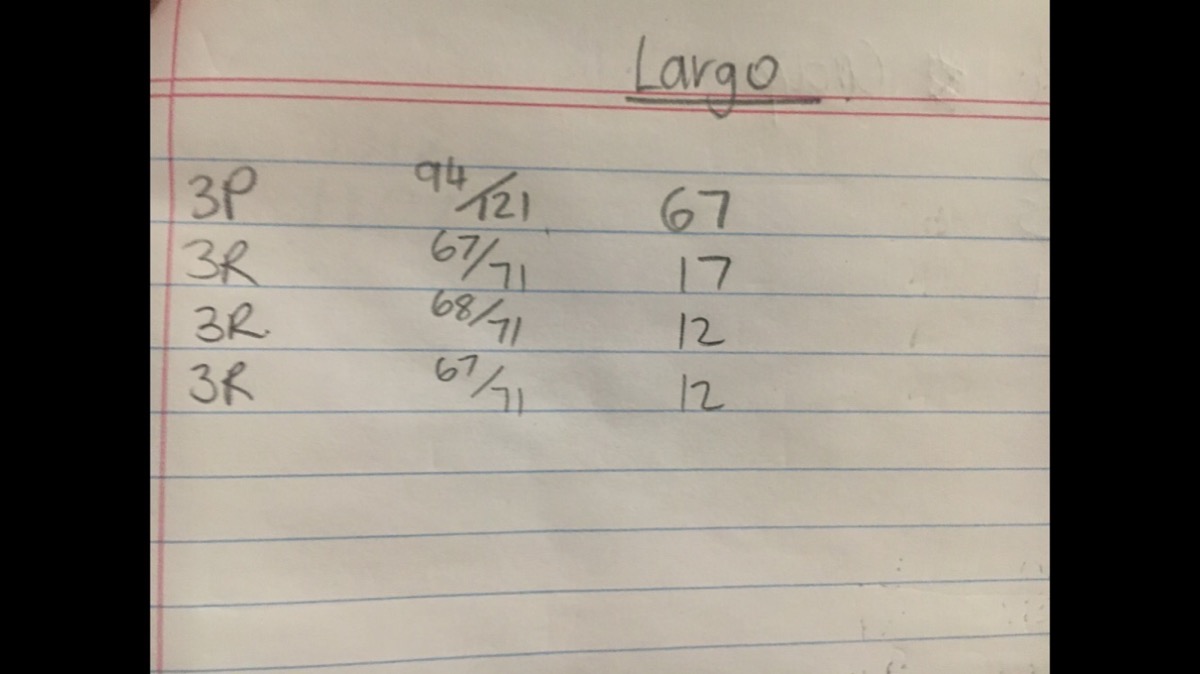 Largo
3P 94/121 67
3R 67/71 17
3R 68/71 12
3R 67/71 12